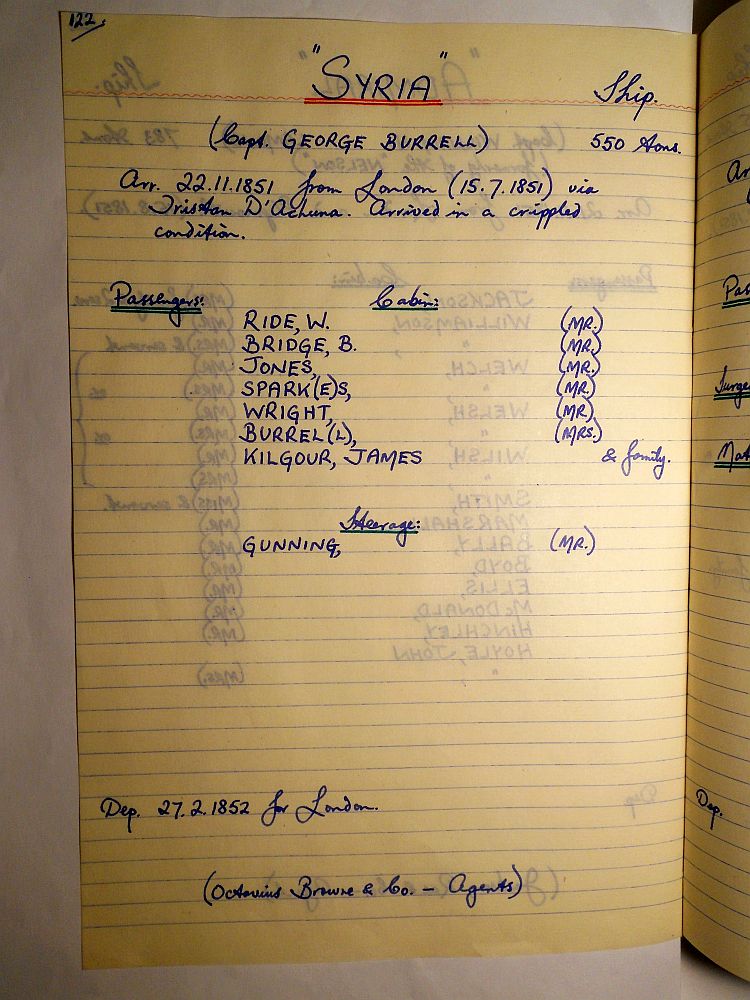 122.
"SYRIA" Ship.
(Capt. GEORGE BURRELL) 550 tons.
Arr. 22.11.1851 from London (15.7.1851) via
Tristan D'Achuna. Arrived in a crippled
condition.
Passengers: Cabin:
RIDE, W. (MR.)
BRIDGE, B. (MR.)
JONES, (MR.)
SPARK(E)S, (MR.)
WRIGHT, (MR)
BURREL(L), (MRS.)
KILGOUR, JAMES & family.
Steerage:
GUNNING, (MR.)
Dep. 27.2.1852 for London.
(Octavius Browne & Co. - Agents)
Dep.